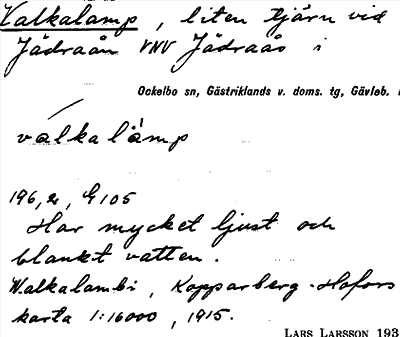 Valkalamp, liten tjärn vid
Jädraån VNV Jädraås i
Ockelbo sn, Gästriklands v. doms. tg, Gävleb.
valkalämp
196,2, G105
Har mycket ljust och
blankt vatten.
Walkalambi, Kopparberg-Hofors
karta 1:16000, 1915.
LARS LARSSON 193